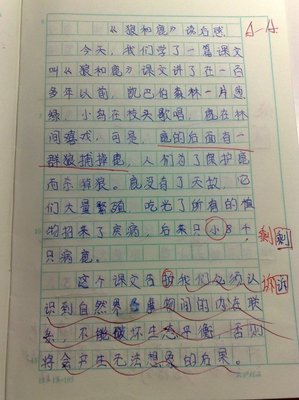 《狼和鹿》读后感
今天，我们学了一篇课文
叫《狼和鹿》课文讲了在一百
多年以前，凯巴伯森林一片葱
绿，小鸟在枝头歌唱，鹿在林
间嬉戏，可是，鹿的后面有一
群狼捕掉鹿，人们为了保护鹿
而杀掉狼。鹿没有了天敌，它
们大量繁殖，吃光了所有的植
物招来了疾病，后来只小8千
只病鹿。
剩 剩
这个课文告我们必须认
诉 诉
识到自然界各事物间的内在联
系，不能破坏生态平衡，否则
将会产生无法想象的后果。